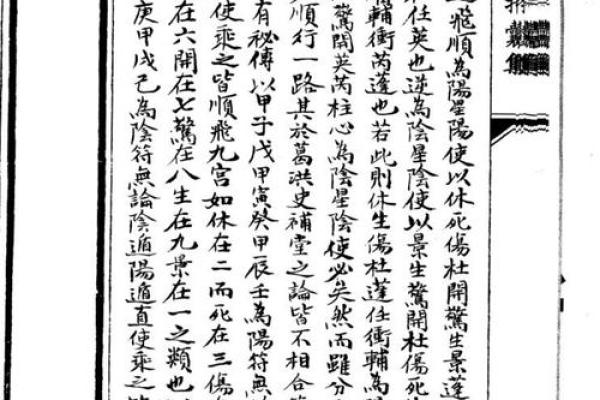 飛順為陽星陽使以休死傷杜開驚生景蓬
任英也逆為陰星陰使以景生驚開杜傷死
輔衝芮蓬也若此則休生傷杜蓬任衝輔為
驚開英芮柱心為陰星陰使必矣然而雖分
順行一路其於葛洪史補堂之論皆不相合
有秘傳以甲子戊甲寅癸甲辰壬為陽符無
使乘之皆順飛九宮如休在二而死在三傷
在六開在七驚在八生在九景在一之類也
庚甲戌己為陰符無論陰遁陽遁直使乘之